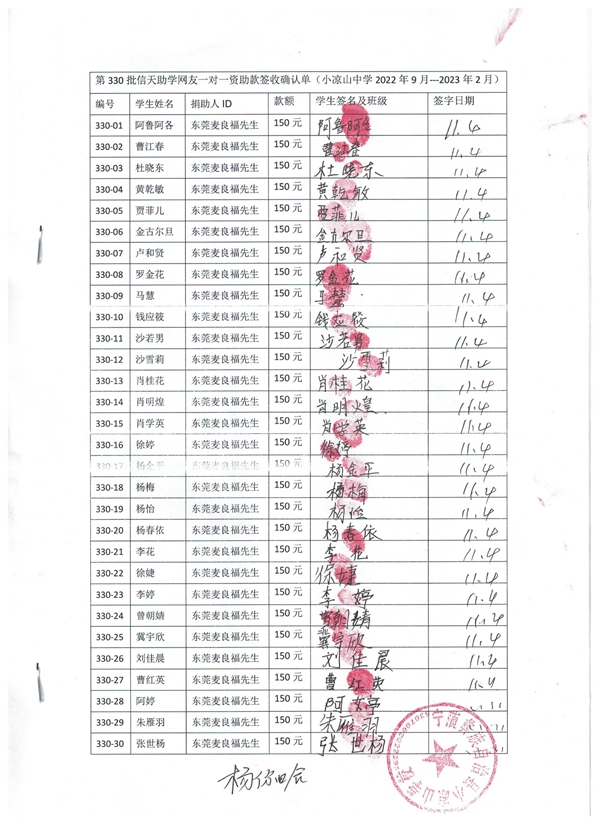 第 330 批信天助学网友一对一资助款签收确认单（小凉山中学 2022 年 9 月---2023 年 2 月）
编号 学生姓名 捐助人 ID 款额 学生签名及班级 签字日期
330-01 阿鲁阿各 东莞麦良福先生 150 元 阿鲁阿各 11.4
330-02 曹江春 东莞麦良福先生 150 元 曹江春 11.4
330-03 杜晓东 东莞麦良福先生 150 元 杜晓东 11.4
330-04 黄乾敏 东莞麦良福先生 150 元 黄乾敏 11.4
330-05 贾菲儿 东莞麦良福先生 150 元 贾菲儿 11.4
330-06 金古尔旦 东莞麦良福先生 150 元 金古尔旦 11.4
330-07 卢和贤 东莞麦良福先生 150 元 卢和贤 11.4
330-08 罗金花 东莞麦良福先生 150 元 罗金花 11.4
330-09 马慧 东莞麦良福先生 150 元 马慧 11.4
330-10 钱应筱 东莞麦良福先生 150 元 钱应筱 11.4
330-11 沙若男 东莞麦良福先生 150 元 沙若男 11.4
330-12 沙雪莉 东莞麦良福先生 150 元 沙雪莉 11.4
330-13 肖桂花 东莞麦良福先生 150 元 肖桂花 11.4
330-14 肖明煌 东莞麦良福先生 150 元 肖明煌 11.4
330-15 肖学英 东莞麦良福先生 150 元 肖学英 11.4
330-16 徐婷 东莞麦良福先生 150 元 徐婷 11.4
330-17 杨金平 东莞麦良福先生 150 元 杨金平 11.4
330-18 杨梅 东莞麦良福先生 150 元 杨梅 11.4
330-19 杨怡 东莞麦良福先生 150 元 杨怡 11.4
330-20 杨春依 东莞麦良福先生 150 元 杨春依 11.4
330-21 李花 东莞麦良福先生 150 元 李花 11.4
330-22 徐婕 东莞麦良福先生 150 元 徐婕 11.4
330-23 李婷 东莞麦良福先生 150 元 李婷 11.4
330-24 曾朝婧 东莞麦良福先生 150 元 曾朝婧 11.4
330-25 冀宇欣 东莞麦良福先生 150 元 冀宇欣 11.4
330-26 刘佳晨 东莞麦良福先生 150 元 刘佳晨 11.4
330-27 曹红英 东莞麦良福先生 150 元 曹红英 11.4
330-28 阿婷 东莞麦良福先生 150 元 阿婷
330-29 朱雁羽 东莞麦良福先生 150 元 朱雁羽
330-30 张世杨 东莞麦良福先生 150 元 张世杨
宁蒗彝族自治县小凉山学校